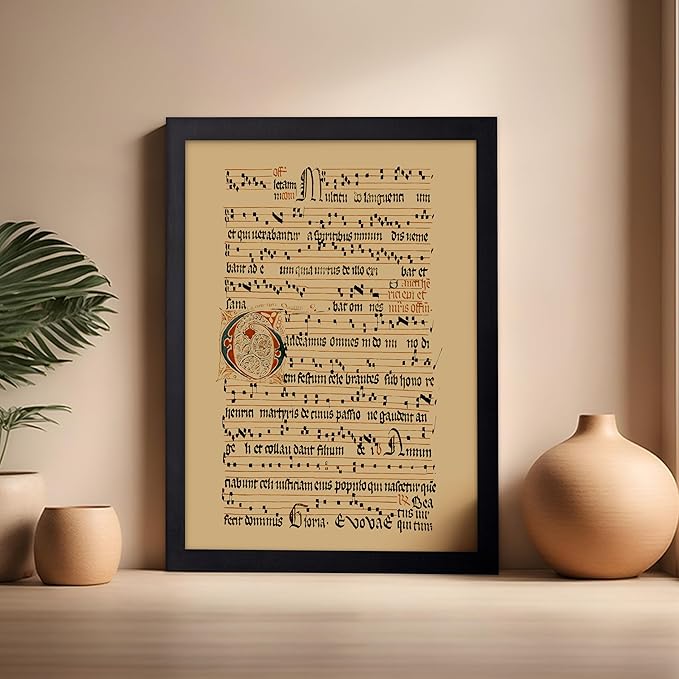 off
setam Multitu do languenti um
m com
et qui vexabantur a spiritibus immun dis venie
bant ad e um quia virtus de illo exi bat et
sana bat om nes
rici epi et
mris offm.
Gaudeamus omnes in do mi no di
em festum cele brantes sub hono re
henrici martyris de cuius passio ne gaudent an
ge li et collau dant filium de i Annun
ciabunt celi iusticiam eius populo qui nascetur que
fecit dominus Gloria. EVOVAE
Bea
tus vir
qui tim